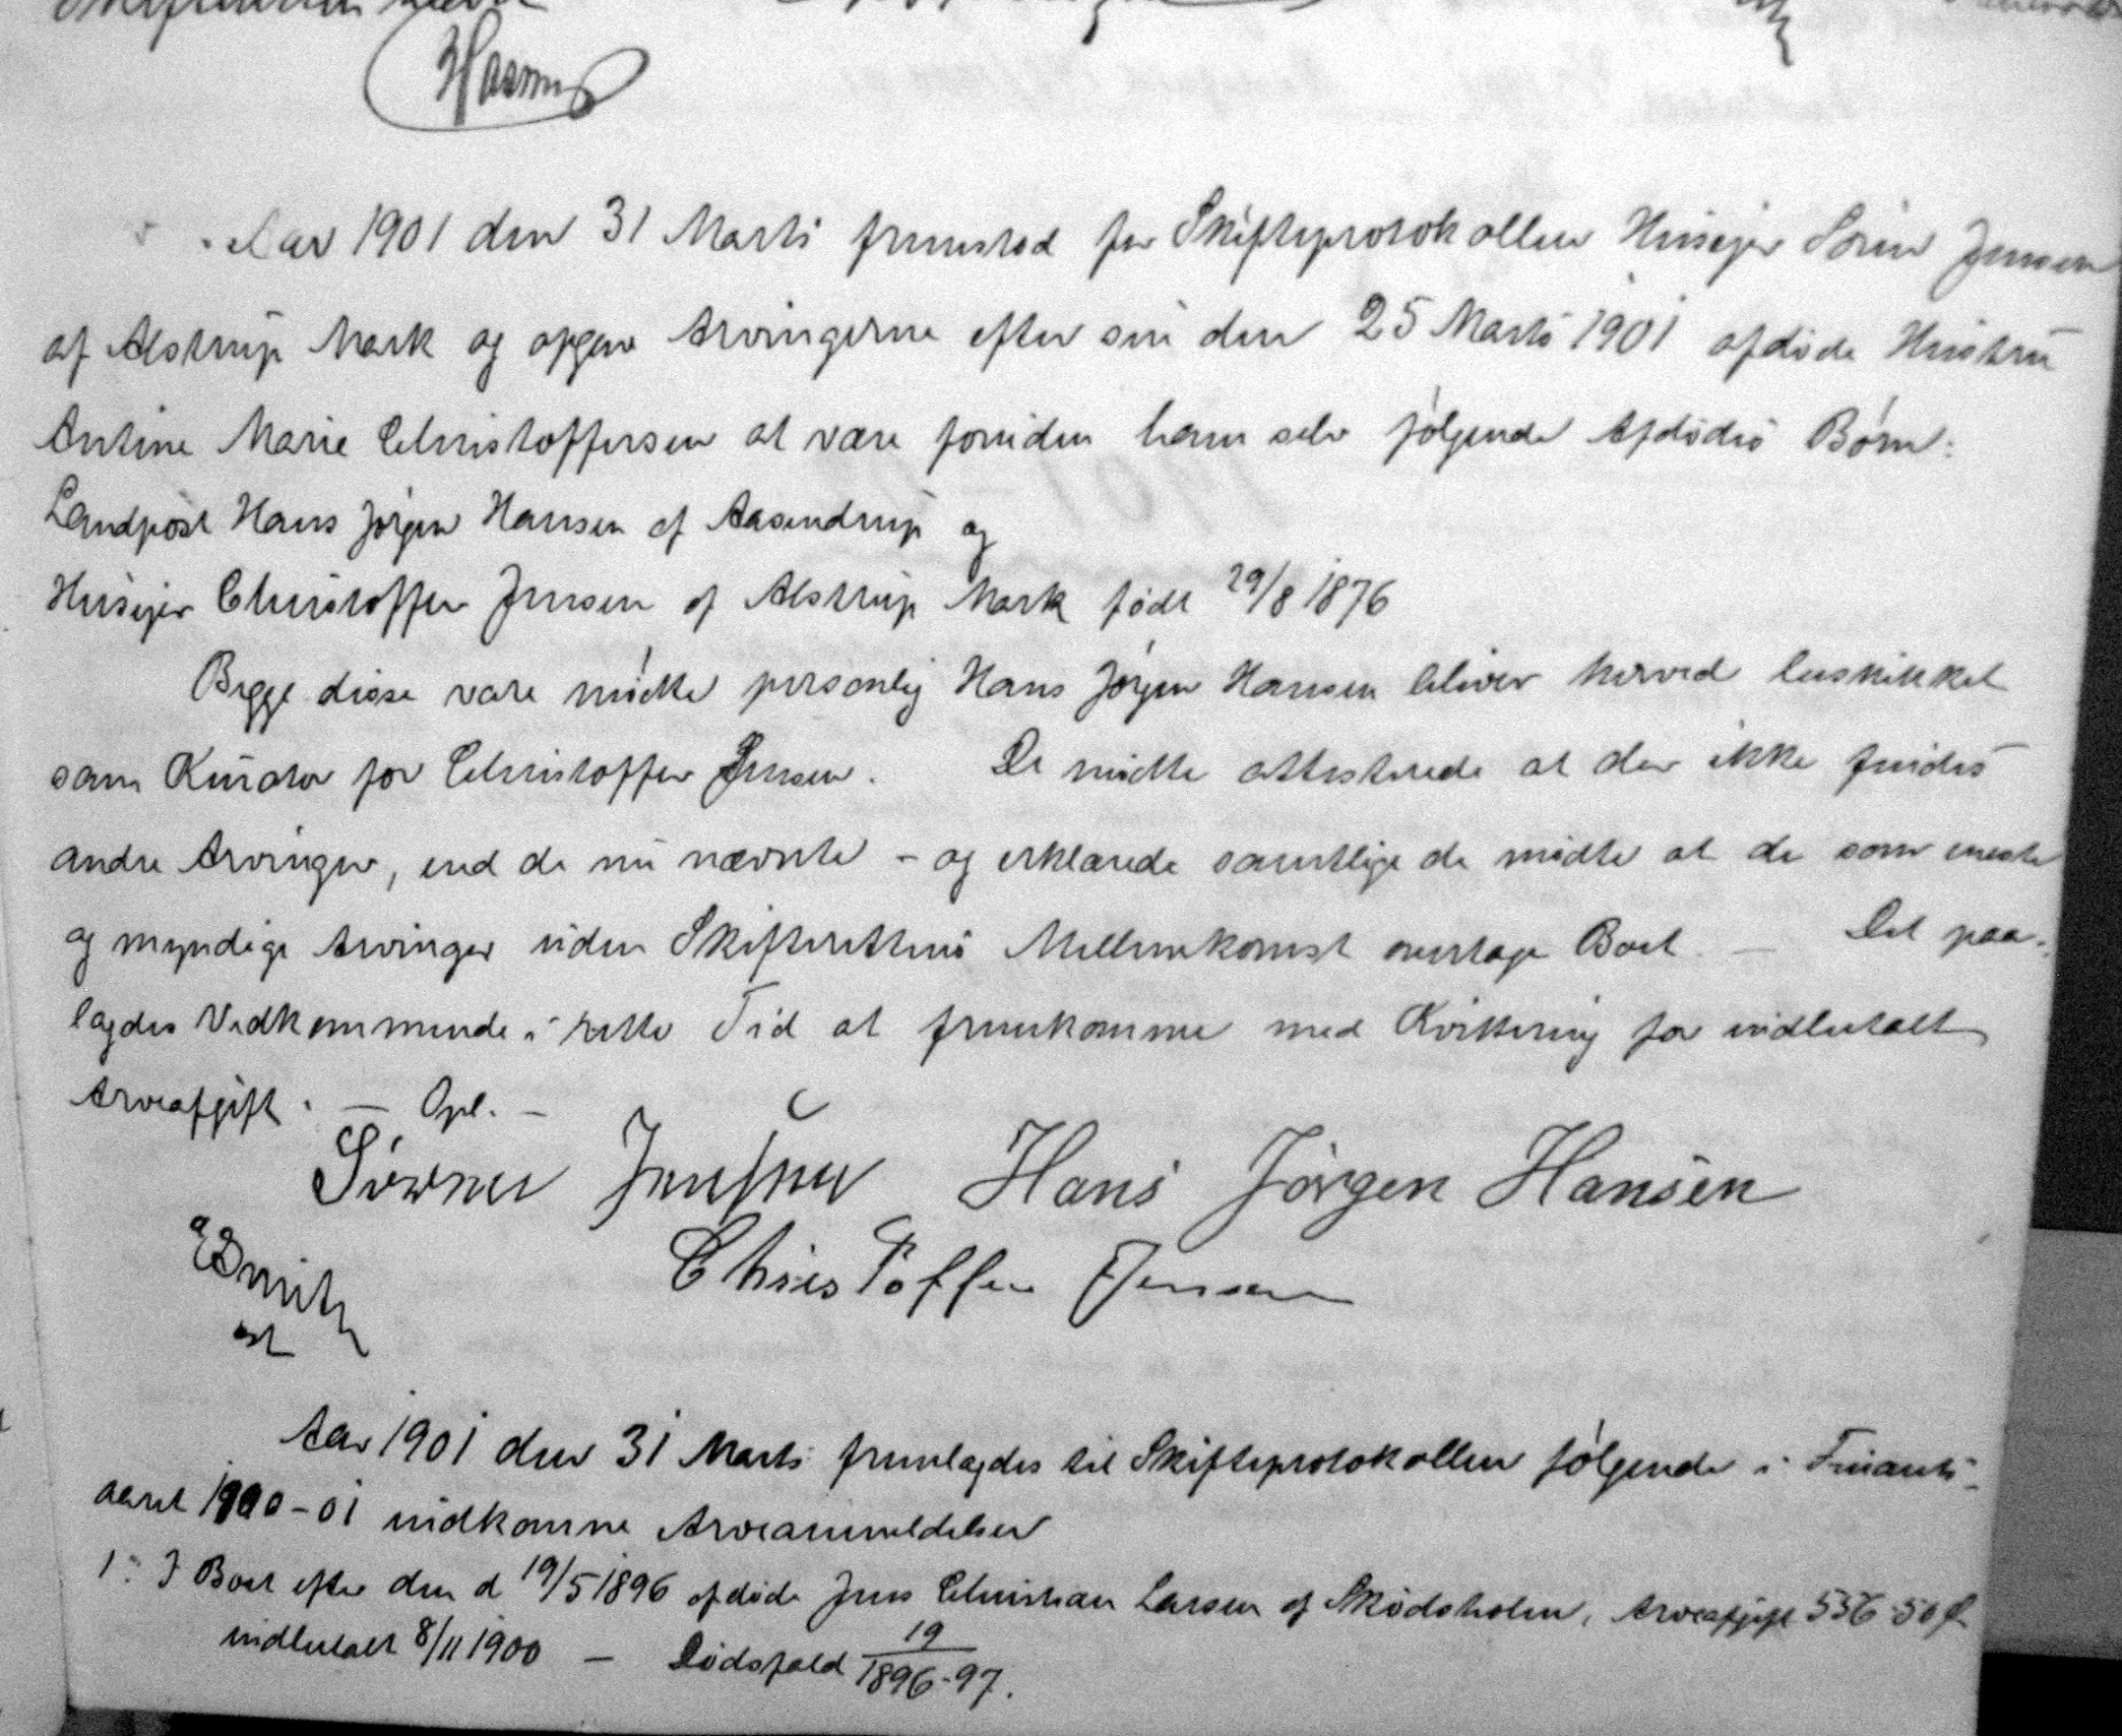 Aar 1901 den 31 Marts fremstod for Skifteprotokollen Husejer Sören Jensen
af Alstrup Mark og opgav Arvingerne efter sin den 25 Marts 1901 afdøde Hustru
Antine Marie Christoffersen at være foruden ham selv følgende Afdødes Børn:
Landpost Hans Jørgen Hansen af Aasendrup og
Husejer Christoffer Jensen af Alstrup Mark født 29/8 1876
Begge disse vare mødte personlig Hans Jørgen Hansen bliver herved beskikket
som Kurator for Christoffer Jensen. De mødte attesterede at der ikke findes
andre Arvinger, end de nu nævnte - og erklærede samtlige de mødte at de som eneste
og myndige Arvinger uden Skifterettens Mellemkomst overtage Boet. — Det paa-
lagdes Vedkommende i rette Tid at fremkomme med Kvittering for indbetalt
Arveafgift. — Opl. —
Sörren Jensen Hans Jørgen Hansen
Christoffer Jensen
Aar 1901 den 31 Marts fremlagdes til Skifteprotokollen følgende i Finants-
aaret 1900-01 indkomne Arveanmeldelser
1: I Boet efter den d 19/5 1896 afdøde Jens Christian Larsen af Skødsholm, Arveafgift 556-50
indbetalt 8/11 1900 — Dødsfald 19/1896-97.